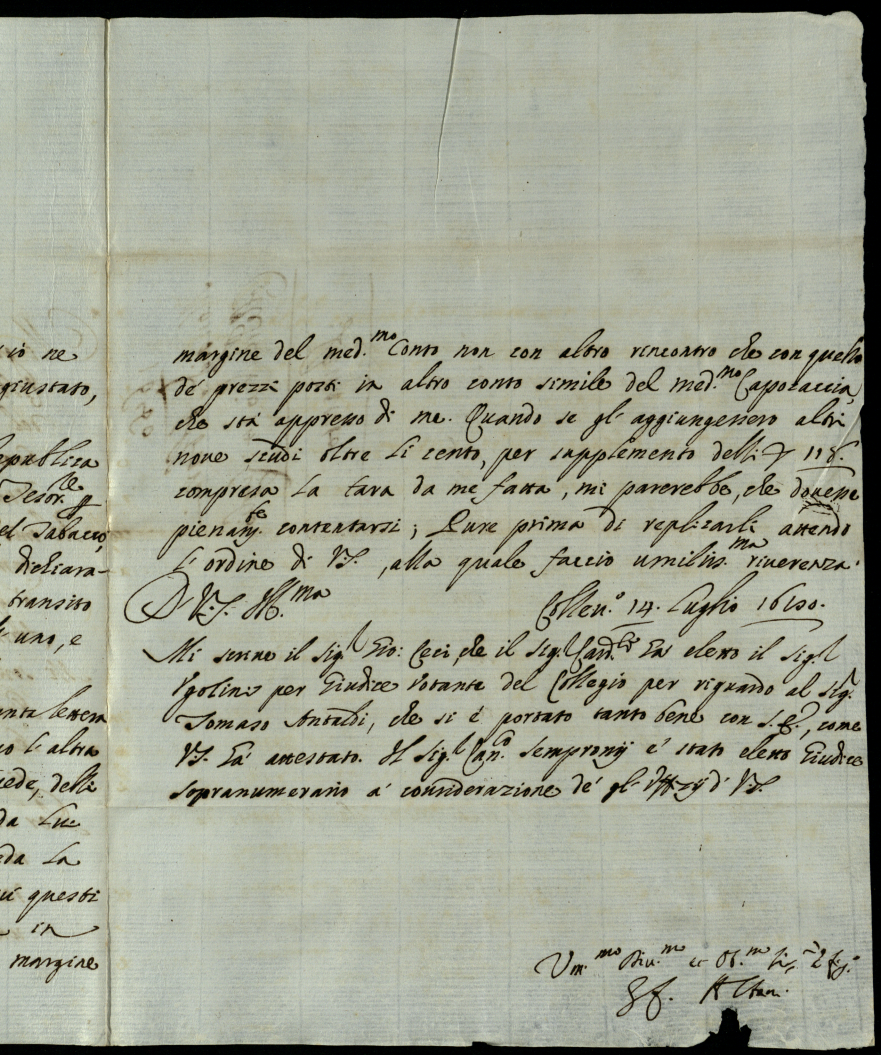 io ne
giustato,
epublica
Tesor.re p
el Tabacco,
dichiara-
transito
uno, e
lettera
l'altra
ede, delli
da
da La
questi
in
margine
margine del med.mo Conto non con altro rincontro che con quello
de' prezzi posti in altro conto simile del med.mo Capozaccia,
che stá appresso di me. Quando se gl'aggiungessero altri
nove scudi oltre li cento, per supplemento delli 118.
compresa la tara da me fatta, mi parerebbe, che dovesse
pienam.te contentarsi; Pure prima di replicarli attendo
l'ordine di V.S., alla quale faccio umiliss.ma riverenza.
Di V.S. Ill.ma Collev.o 14. Luglio
Mi scrive il Sig.r Gio: Ceci, che il Sig.r Card.le há eletto il Sig.r
Ugolini per Giudice Votante del Collegio per riguardo al Sig.r
Tomaso Antaldi, che si é portato tanto bene con S.E., come
V.S. há attestato. Il Sig.r Can.co Sempronij é stato eletto Giudice
sopranumerario á considerazione de' gl'Uffizij di V.S.
Um.mo Div.mo et Ob.mo